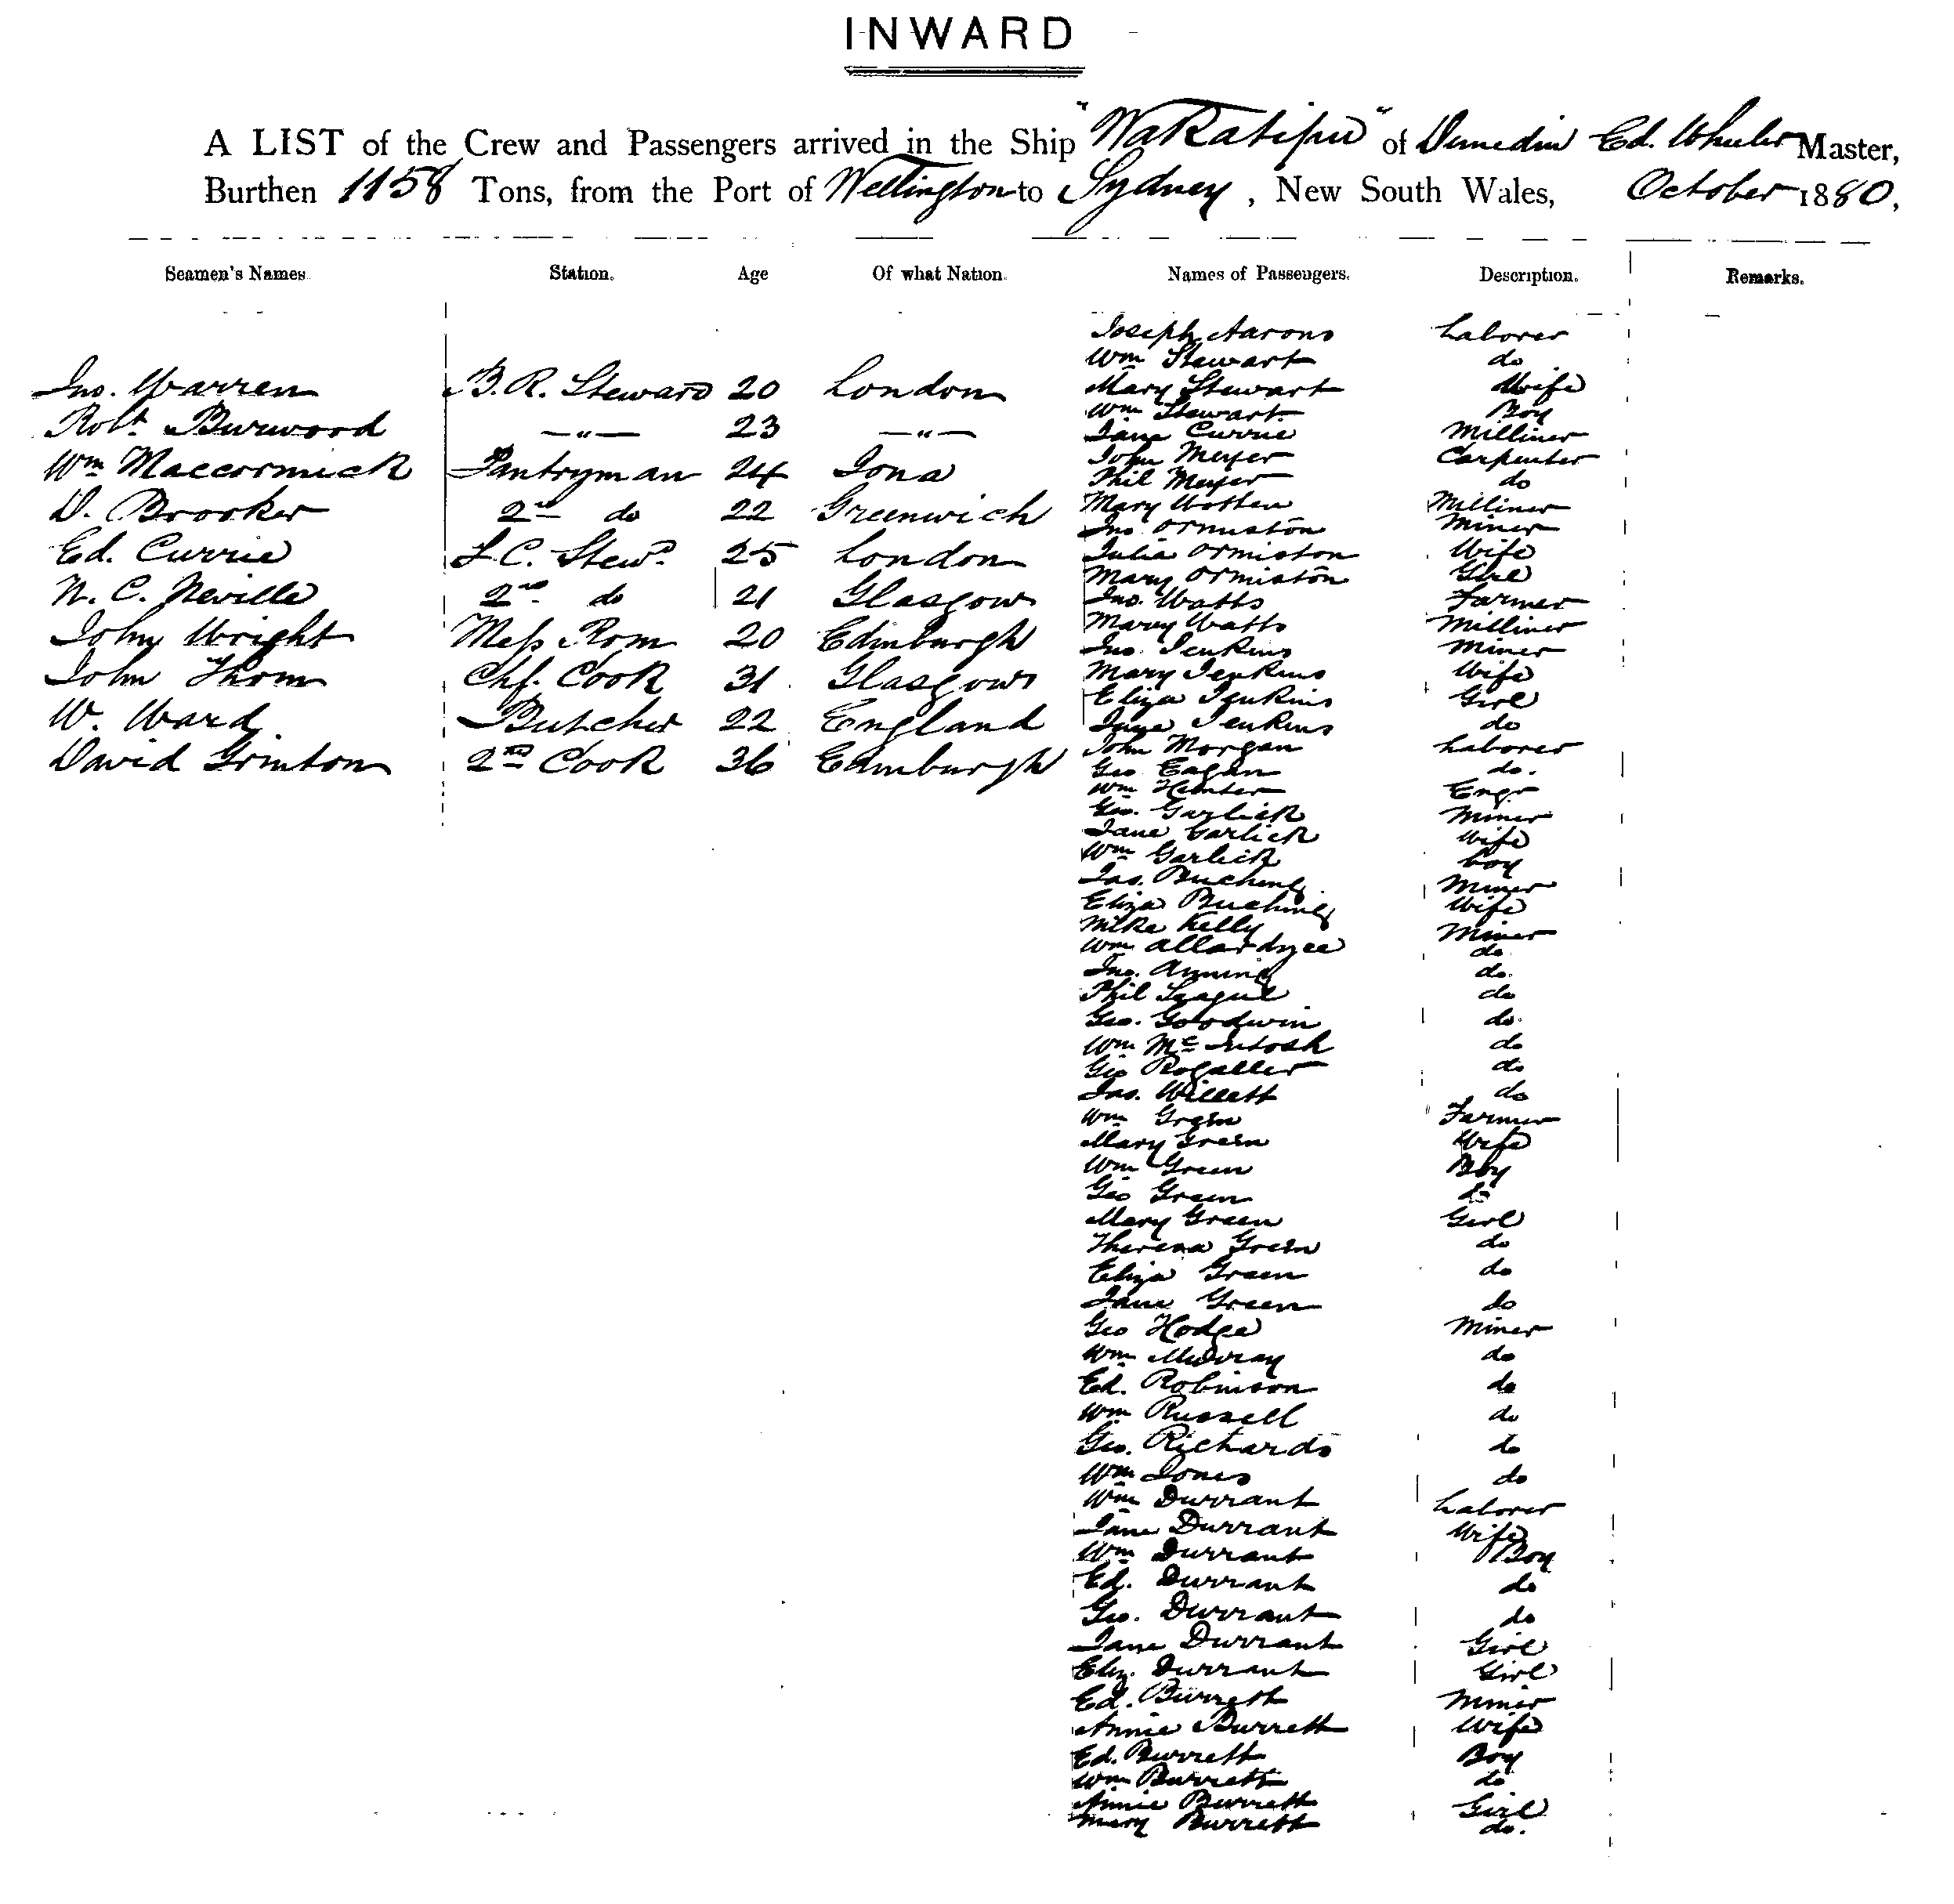 INWARD
A LIST of the Crew and Passengers arrived in the Ship "Wakatipu" of Dunedin Ed. Wheeler Master,
Burthen 1158 Tons, from the Port of Wellington to Sydney, New South Wales, October 1880,
Seamen's Names Station. Age Of what Nation. Names of Passengers. Description. Remarks.
Jno. Warren B. R. Steward 20 London
Robt Burwood —"— 23 —"—
Wm Maccormick Pantryman 24 Iona
D. Brooker 2nd do 22 Greenwich
Ed. Currie F. C. Stewd 25 London
N. C. Neville 2nd do 21 Glasgow
John Wright Mess Rom 20 Edinburgh
John Thom Chf. Cook 31 Glasgow
W. Ward Butcher 22 England
David Grinton 2nd Cook 36 Edinburgh
Joseph Aarons Laborer
Wm Stewart do
Mary Stewart Wife
Wm Stewart Boy
Jane Currie Milliner
John Meyer Carpenter
Phil Meyer do
Mary Milliner
Jno Ormiston Miner
Julia Ormiston Wife
Mary Ormiston Girl
Jno. Watts Farmer
Mary Watts Milliner
Jno. Jenkins Miner
Mary Jenkins Wife
Eliza Jenkins Girl
Jane Jenkins do
John Morgan Laborer
Geo Eagan do.
Wm Hunter Engr
Geo. Garlick Miner
Jane Garlick Wife
Wm Garlick boy
Jas. Miner
Eliza Wife
Mike Kelly Miner
Wm Allardyce do
Jno. Anning do.
Phil do
Geo. Goodwin do.
Wm McIntosh do
Geo Rogaller do
Jas. Willett do
Wm Green Farmer
Mary Green Wife
Wm Green Boy
Geo Green do
Mary Green Girl
Theresa Green do
Eliza Green do
Jane Green do
Geo Hodge Miner
Wm Murray do
Ed. Robinson do
Wm Russell do
Geo. Richards do
Wm Jones do
Wm Durrant Laborer
Jane Durrant Wife
Wm Durrant Boy
Ed. Durrant do
Geo. Durrant do
Jane Durrant Girl
Eliz. Durrant Girl
Ed. Burrett Miner
Annie Burrett Wife
Ed. Burrett Boy
Wm Burrett do
Annie Burrett Girl
Mary Burrett do.